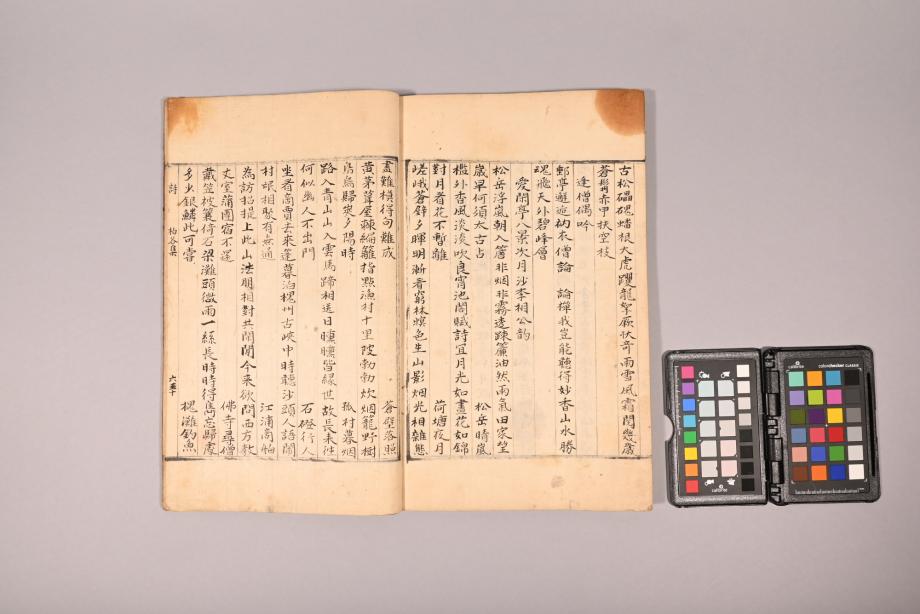 古松磊磈蟠根大虎躩龍拏厥狀奇雨雪風霜閱幾歲
蒼髥赤甲扶空枝
逢僧偶吟
郵亭邂逅衲衣僧論 論禪我豈能聽得妙香山水勝
魂飛天外碧峰層
愛閑亭八景次月沙李相公韵
松岳浮嵐朝入簷非烟非霧遠疎簾油然雨氣田家望
歲旱何須太古占 松岳晴嵐
檻外香風淡淡吹良宵池閣賦詩宜月光如晝花如錦
對月看花不暫離 荷塘夜月
嵯峨蒼壁夕暉明漸看窮林煖色生山影烟光相雜態
畵難模得句難成 蒼壁落照
黃茅葺屋棘編籬指點漁村十里陂勃勃炊烟籠野樹
烏烏歸哭夕陽時 孤村暮烟
路入青山山入雲馬蹄相送日曛曛皆緣世故長來往
何似幽人不出門 石磴行人
坐看商賈去來篷暮泊槐州古峽中時聽沙頭人語鬧
村岷相聚有無通 江浦商帆
為訪招提上此山法朋相對共閑閑今來欲問西方教
丈室蒲團宿不還 佛寺尋僧
戴笠披簑倚石梁灘頭微雨一絲長時時得雋忘歸處
多少銀鱗此可甞 槐灘釣魚
詩
柏谷集
六五十
calibrite
calibrite
colorchecker CLASSIC